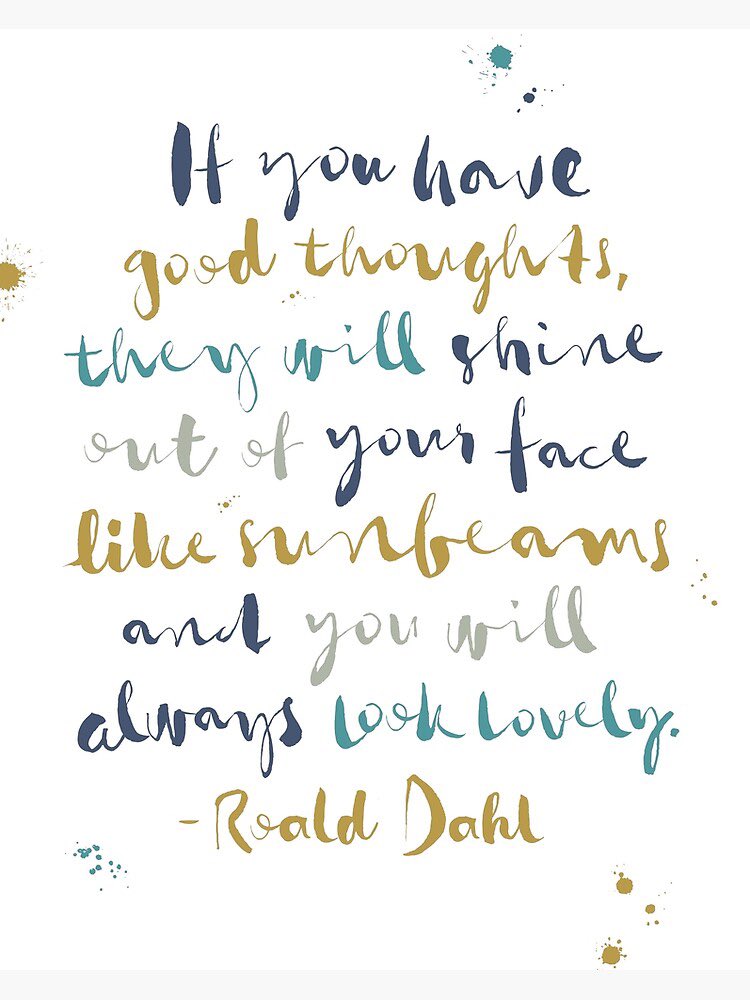 If you have
good thoughts,
they will shine
out of your face
like sunbeams
and you will
always look lovely.
-Roald Dahl